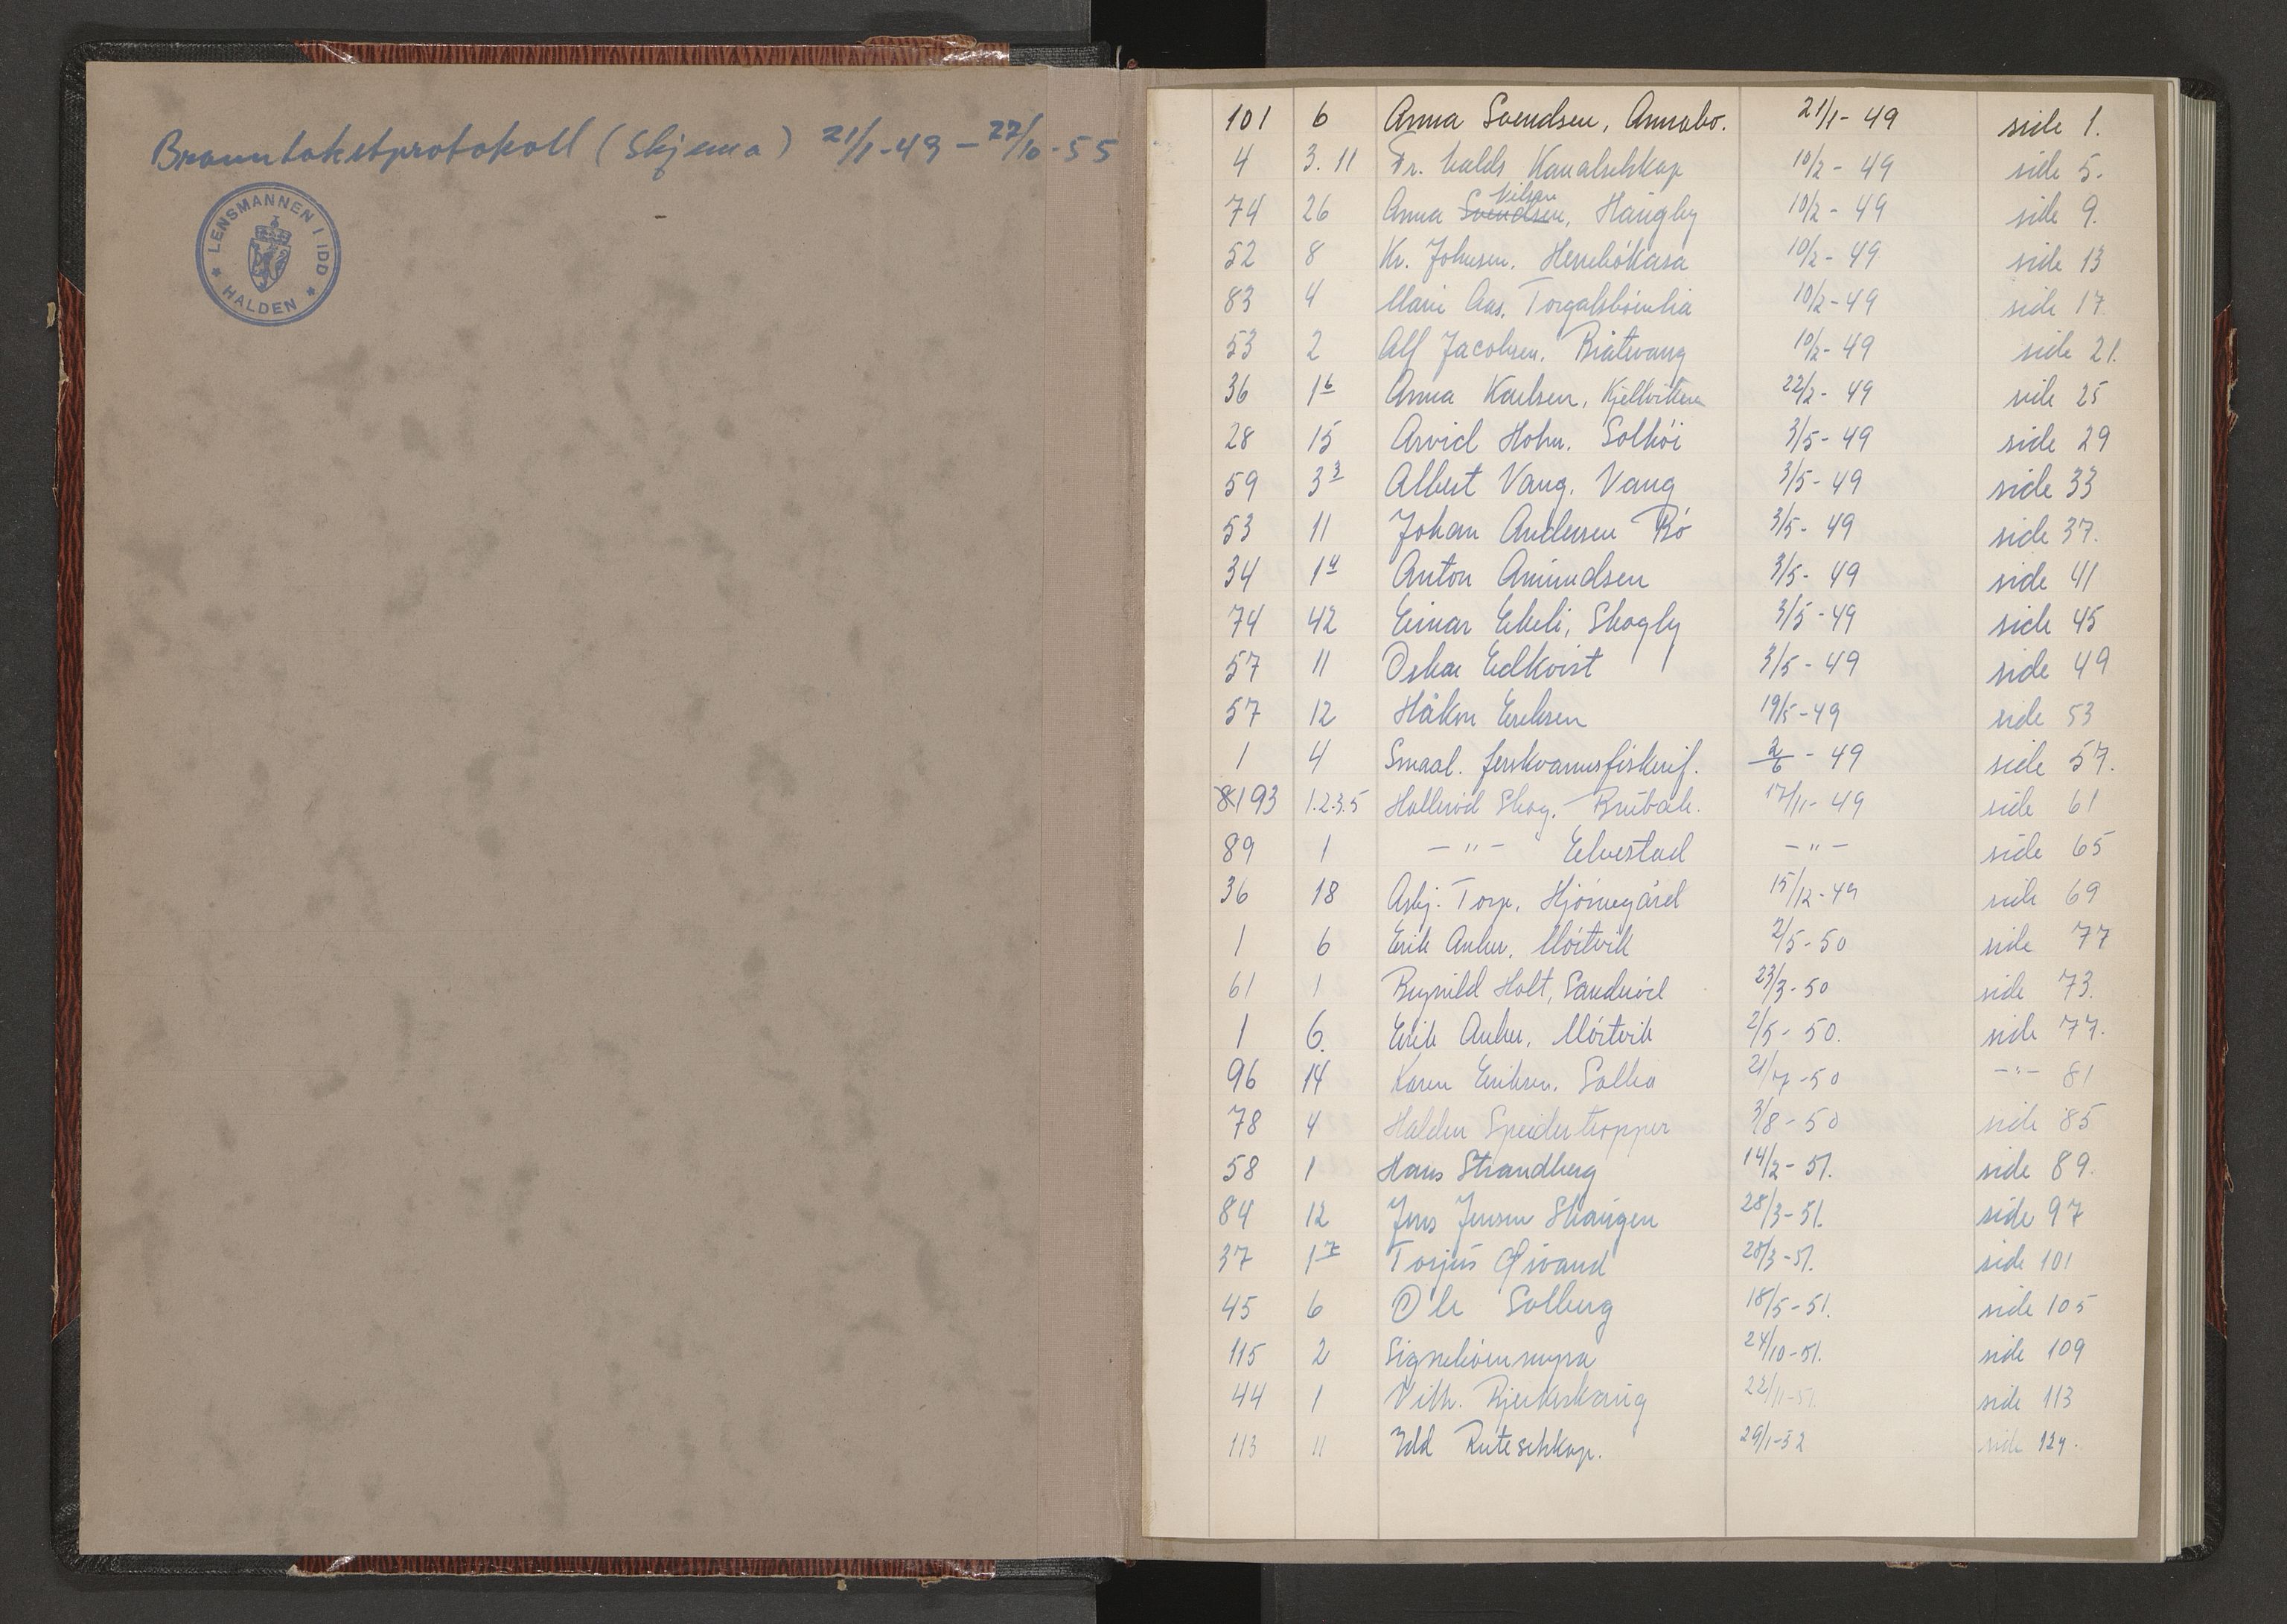 Branntakstprotokoll (Skjema) 21/1-49 - 27/10-55
LENSMANNEN I IDD
* HALDEN *
101 6 Anna Svendsen, Annabo. 21/1- 49 side 1.
4 3. 11 Fr. halds Kanalselskap 10/2 - 49 side 5.
74 26 Anna Svendsen Nilsen, Haugby 10/2 - 49 side 9.
52 8 Kr. Johnsen. 10/2 - 49 side 13
83 4 Marie Aas. 10/2-49 side 17
53 2 Alf Jacobsen. 10/2- 49 side 21.
36 1 6 Anna Karlsen, Kjellviken 22/2- 49 side 25
28 15 Arvid Holm. Solhöi 3/5- 49 side 29
59 3 3 Albert Vang. Vang 3/5- 49 side 33
53 11 Johan Andersen Bö 3/5- 49 side 37.
34 1 4 Anton Amundsen 3/5- 49 side 41
74 42 Einar Ekeli, Skogly 3/5-49 side 45
57 11 Oskar Edkvist 3/5-49 side 49
57 12 Håkon Eriksen 19/5-49 side 53
1 4 Smaal. ferskvannsfiskerif. 2/6 - 49 side 57.
8193 1.2.3.5 Holleröd Skog. Brübak. 17/11- 49 side 61
89 1 - " - Elvestad - " - side 65
36 18 Asbj. Torp, Hjörnegård 15/12-49 side 69
1 6 Erik Anker, Mörtvik 2/5-50 side 77
61 1 Holt, Sanderöd 23/3-50 side 73.
1 6. Erik Anker, Mörtvik 2/5- 50. side 77.
96 14 Karen Eriksen. 21/7-50 -"- 81
78 4 Halden Speidertropper 3/8-50 side 85
58 1 Hans Strandberg 14/2-51. side 89.
84 12 Jens Jensen Skaugen 28/3-51. side 97
37 1 7 Torjus 28/3-51. side 101
45 6 Ole Solberg 18/5-51. side 105
115 2 24/10-51. side 109
44 1 Vilh. 22/11-51. side 113
113 11 Idd Ruteselskap. 29/1-52 side 124.